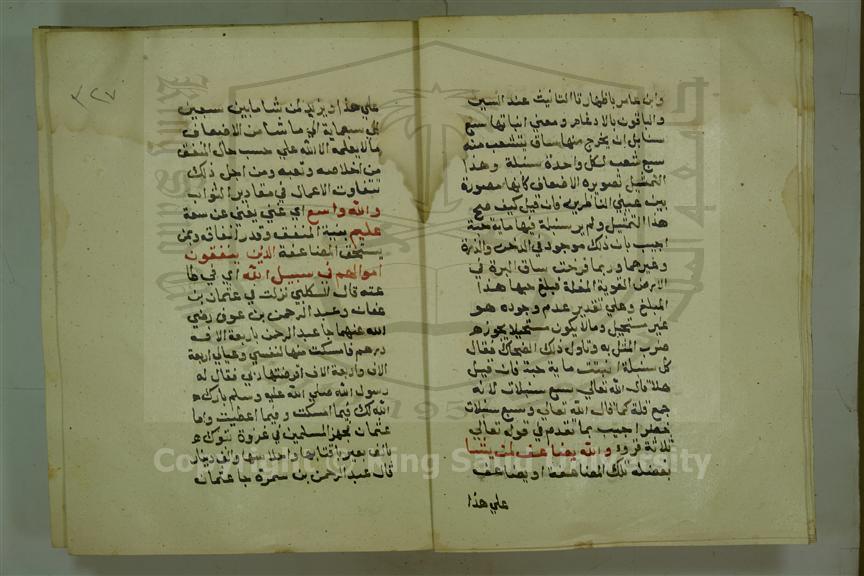 وابن عامر باظهار تا التانيث عند السين
والباقون بالادغام ومعني انباتها سبع
سنابل ان يخرج منها ساق يتشعب منه
سبع شعب لكل واحدة سنبلة وهذا
التمثيل تصويره الاضعاف كانها مصورة
بين عيني الناظرين فان قيل كيف صح
هذا التمثيل ولم ير سنبلة فيها ماية حبة
اجيب بان ذلك موجود في الدخن والذرة
وغيرهما وربما فرخت ساق البرة في
الارض القوية المغلة فبلغ حبها هذا
المبلغ وعلي تقدير عدم وجوده هو
غير مستحيل ومالا يكون مستحيلا يجوز
ضرب المثل به وتاول ذلك الضحاك فقال
كل سنبلة انبتت ماية حبة فان قيل
هلا قال الله تعالي سبع سنبلات لانه
جمع قلة كما قال الله تعالي وسبع سنبلات
خضر اجيب بما تقدم في قوله تعالي
ثلاثة قروء والله يضاعف لمن يشا
بفضله تلك المضاعفة او يضاعف
علي هذا
٣٢٧
علي هذا ويزيد لمن شا مابين سبعين
الي سبعماية الي ما شا من الاضعاف
مالا يعلمه الا الله علي حسب حال المنفق
من اخلاصه وتعبه ومن اجل ذلك
تتفاوت الاعمال في مقادير الثواب
والله واسع اي غني يغني عن سعة
عليم بنية المنفق وقدر انفاقه وبمن
يستحق المضاعفة الذين ينفقون
اموالهم في سبيل الله اي في طا
عته قال الكلبي نزلت في عثمان بن
عفان وعبد الرحمن بن عوف رضي
الله عنهما جا عبد الرحمن باربعة الاف
درهم فامسكت منها لنفسي وعيالي اربعة
الاف واربعة الاف اقرضتها ربي فقال له
رسول الله صلي الله عليه وسلم بارك
الله لك فيما امسكت وفيما اعطيت واما
عثمان بجهز المسلمين في غزوة تبوك
بالف بعير باقتابها واحلاسها والف دينار
قال عبد الرحمن بن سمرة جا عثمان
Copyright © King Saud University
195